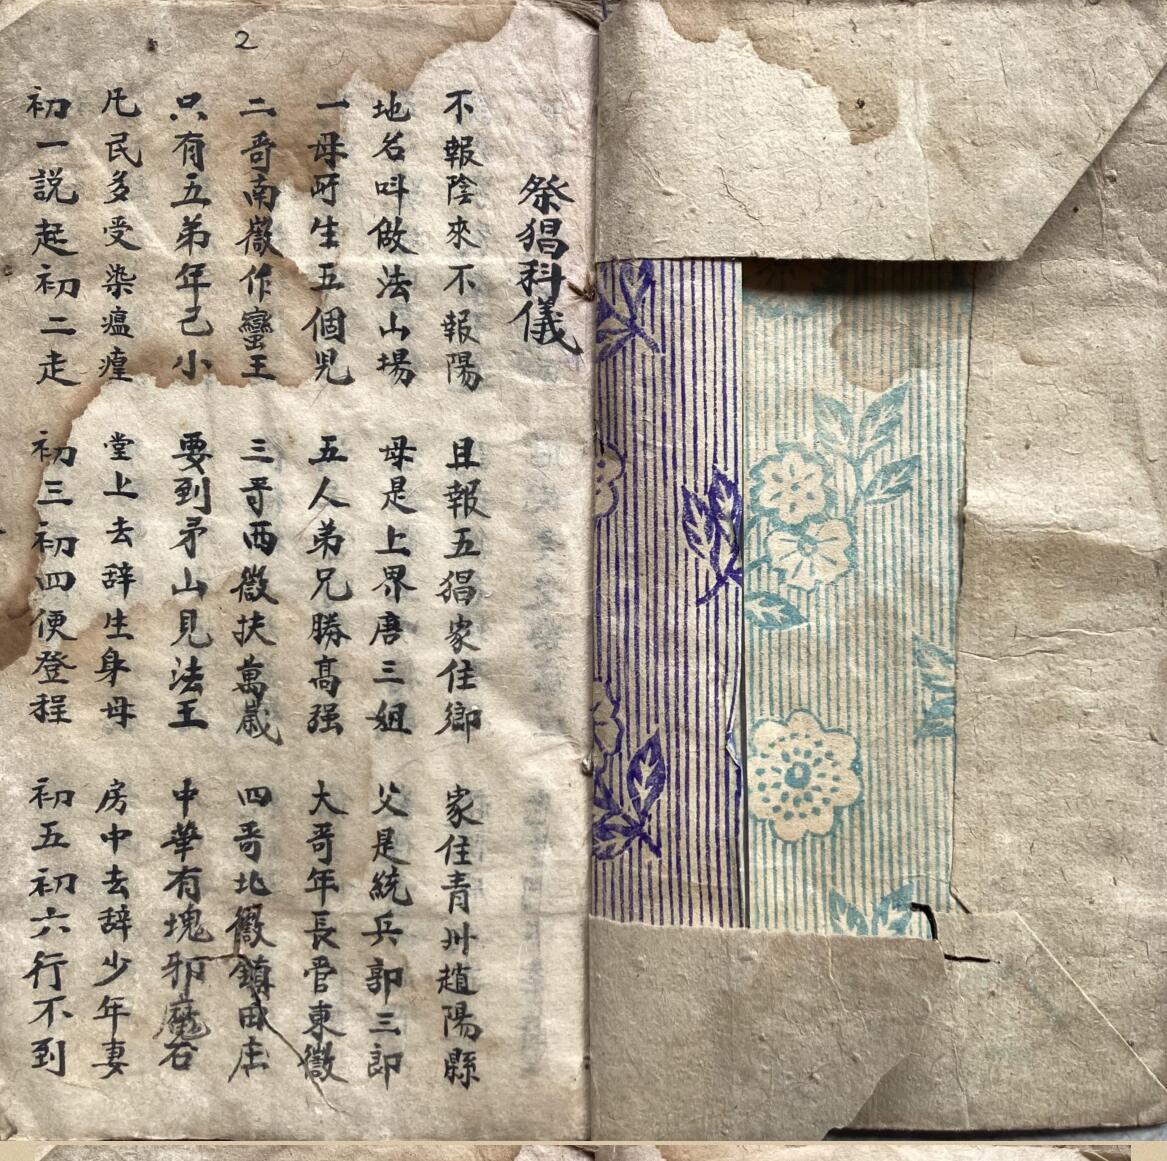 2
祭猖科儀
不報陰來不報陽 且報五猖家住鄉 家住青州趙陽縣
地名叫做法山塲 母是上界唐三姐 父是統兵郭三郎
一母所生五個児 五人弟兄勝高强 大哥年長管東徵
二哥南徵作蠻王 三哥西徵扶萬歲 四哥北徵鎮田庄
只有五弟年己小 要到矛山見法王 中華有塊邪魔石
凡民多受染瘟㾮 堂上去辞生身母 房中去辞少年妻
初一説起初二走 初三初四便登程 初五初六行不到